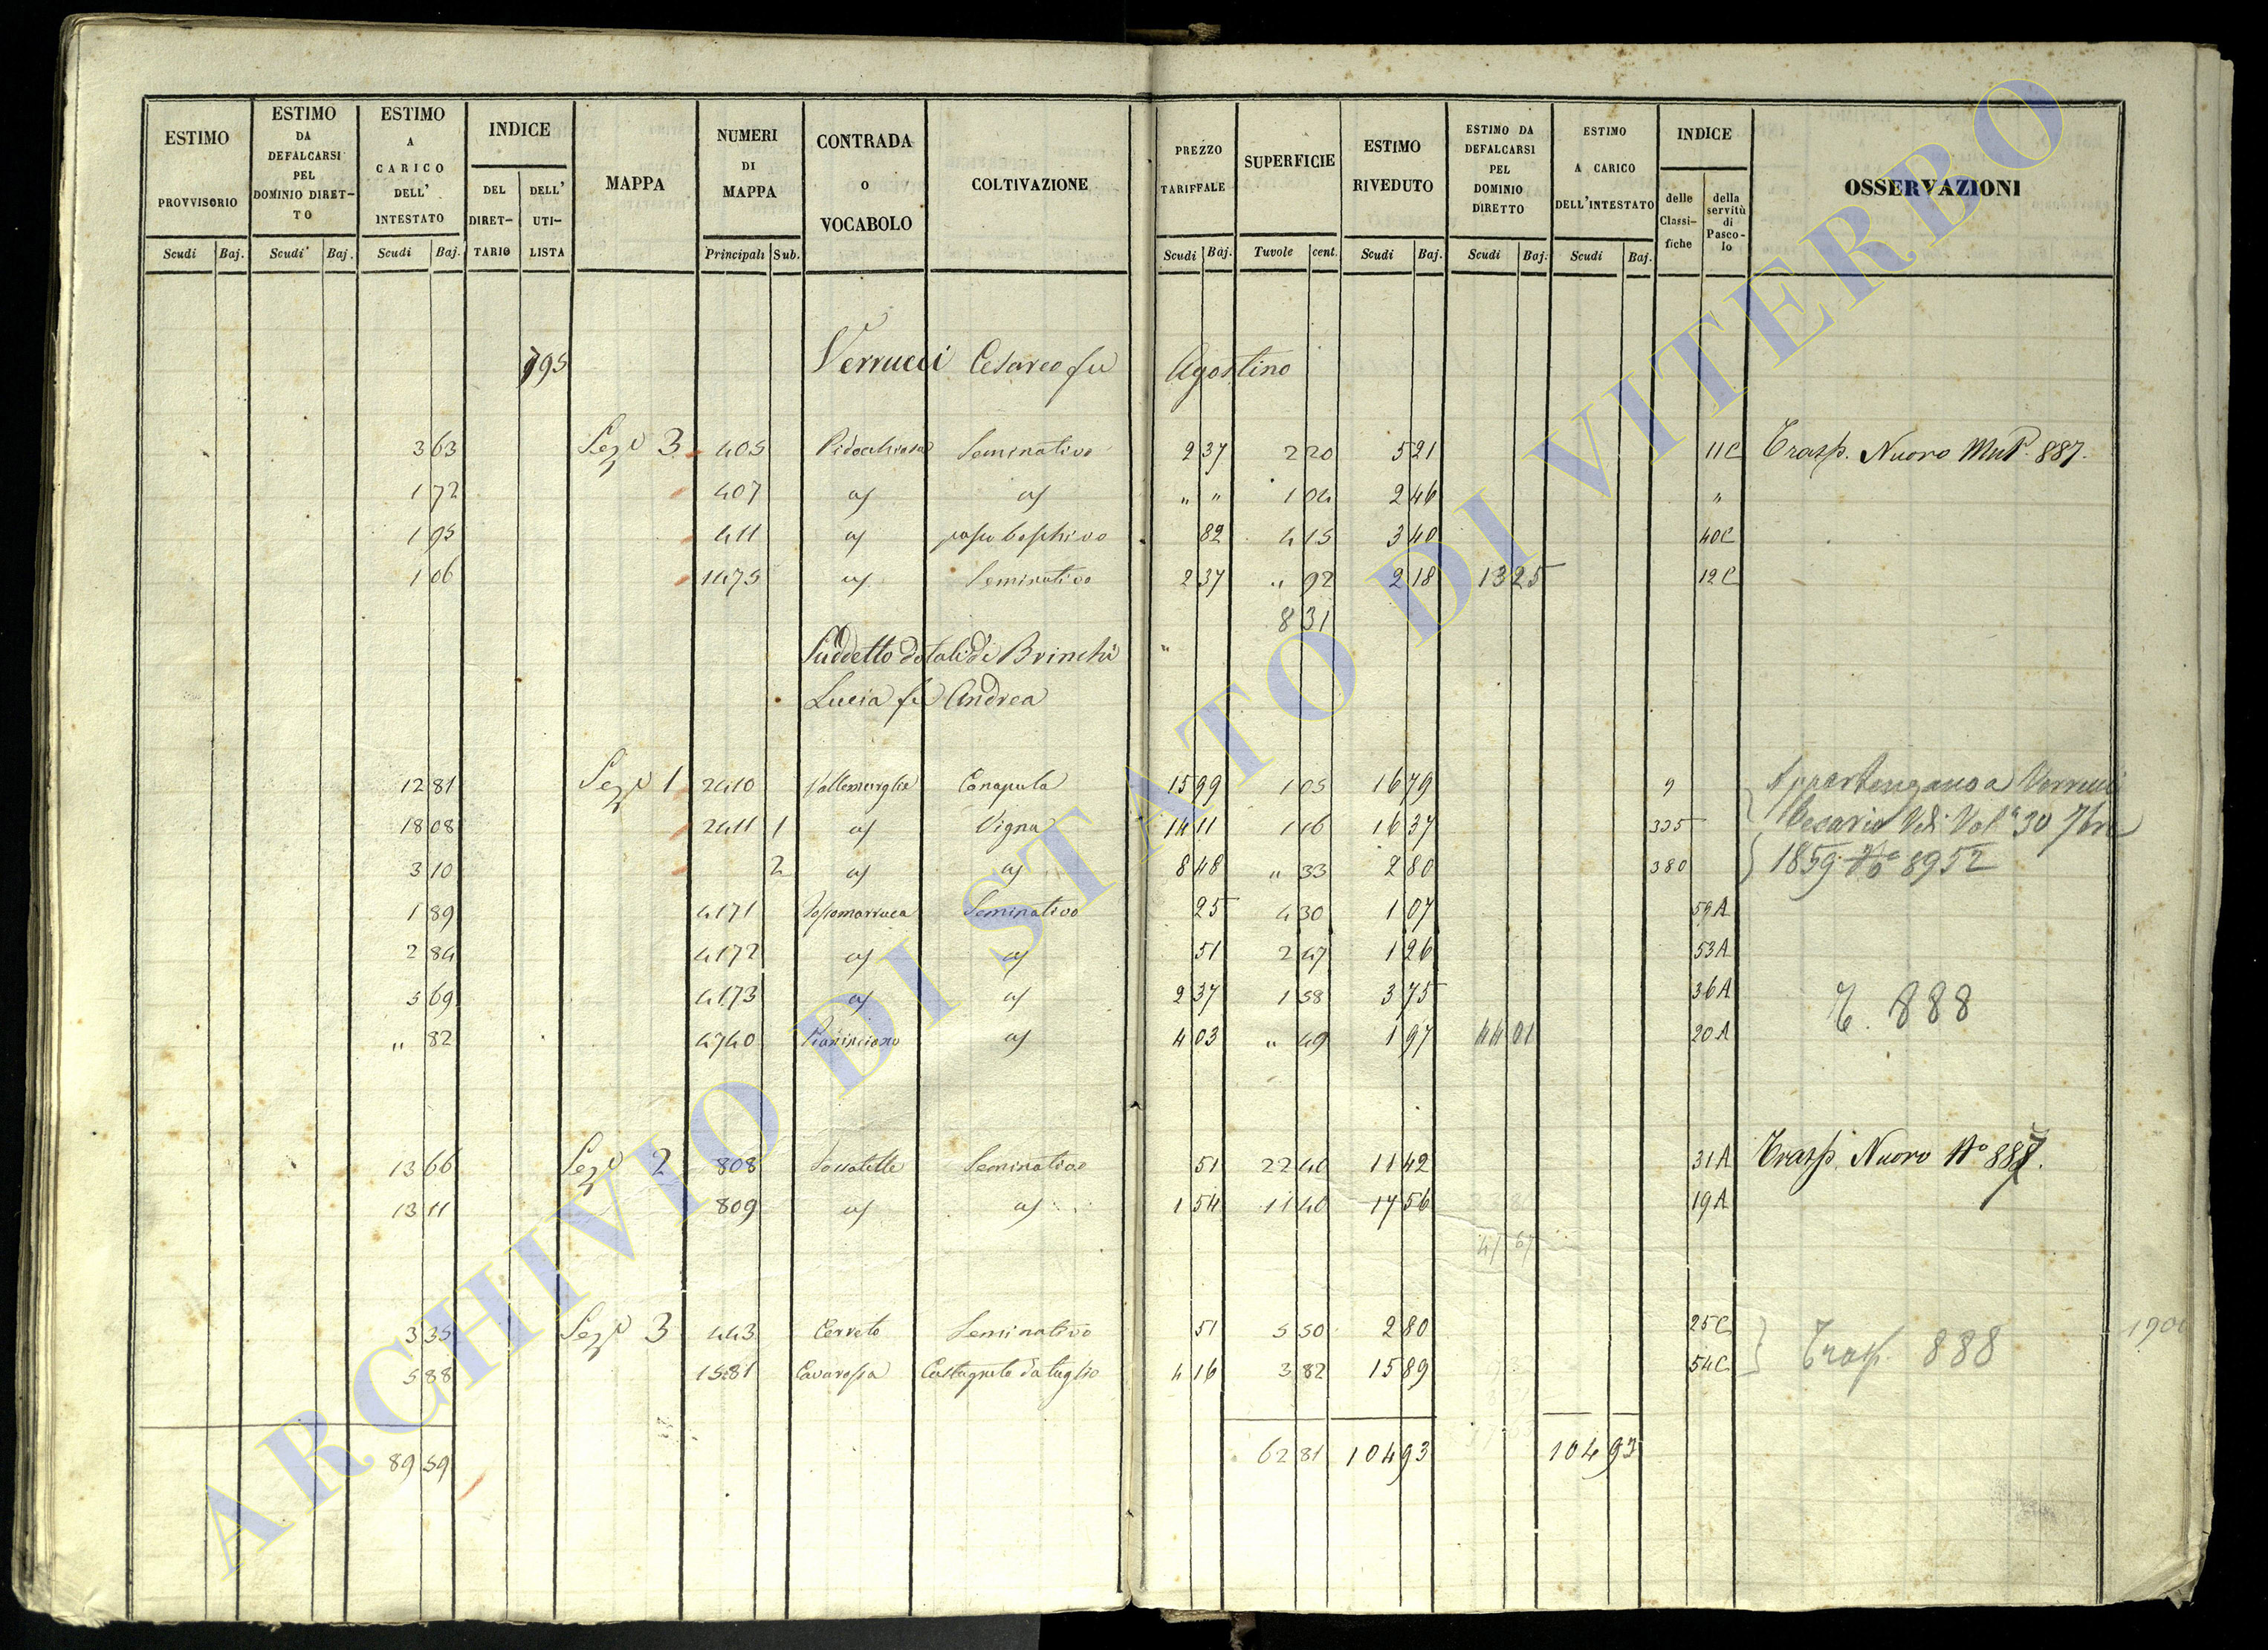 ESTIMO PROVVISORIO
Scudi Baj.
ESTIMO DA DEFALCARSI PEL DOMINIO DIRET-TO
Scudi Baj.
ESTIMO A CARICO DELL' INTESTATO
Scudi Baj.
INDICE
DEL DIRET-TARIO
DELL' UTI-LISTA
MAPPA
NUMERI DI MAPPA
Principali Sub.
CONTRADA O VOCABOLO
COLTIVAZIONE
PREZZO TARIFFALE
Scudi Baj.
SUPERFICIE
Tavole cent.
ESTIMO RIVEDUTO
Scudi Baj.
ESTIMO DA DEFALCARSI PEL DOMINIO DIRETTO
Scudi Baj.
ESTIMO A CARICO DELL'INTESTATO
Scudi Baj.
INDICE
delle Classi-fiche
della servitù di Pasco-lo
OSSERVAZIONI
795 Verrucci Cesareo fu Agostino
3 63 Seze 3 405 Pidocchiosa Seminativo 2 37 2 20 5 21 11C Trasp. Nuovo 887.
1 72 407 " " 1 04 2 46 "
1 95 411 pasco boschivo 82 4 15 3 40 40C
1 06 1475 Seminativo 2 37 " 92 2 18 13 25 12C
8 31
Suddetto dotali di Brinchi "
Lucia fu Andrea
12 81 Seze 1 2410 Canapula 15 99 1 05 16 79 9 Appartengano a Verrucci
18 08 2411 1 Vigna 14 11 1 16 16 37 335 Cesario Ved. Volra 30 7bre
3 10 2 8 48 " 33 2 80 380 1859 No 8952
1 89 4171 Fossomarruca Seminativo 25 4 30 1 07 59A
2 84 4172 51 2 47 1 26 53A
5 69 4173 2 37 1 58 3 75 36A T. 888
" 82 4740 Pianinciano 4 03 " 49 1 97 44 01 20A
13 66 Seze 2 808 Seminativo 51 22 40 11 42 31A Trasp. Nuovo No 887.
13 11 809 1 54 11 40 17 56 19A
3 35 Seze 3 443 Cerreto Seminativo 51 5 50 2 80 25C Trasp. 888
5 88 1581 Cavarossa Castagneto da taglio 4 16 3 82 15 89 54C
89 59 62 81 104 93 104 93
ARCHIVIO DI STATO DI VITERBO